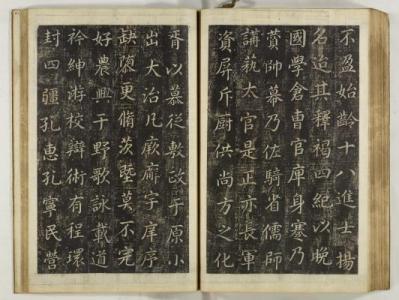 不盈始齡十八進士揚
名迨其釋褐四紀以晚
國學倉曹官庫身寒乃
賛帥幕乃佐騎省儒師
講執大官是正亦長軍
資屏斥廚供尚方之化
胥以慕從敷政于原小
出大治凡厥廨宇庠序
缺隳更脩茨塈莫不完
好農興于野歌詠載道
衿紳游校辯術有程環
封四疆孔惠孔寧民營